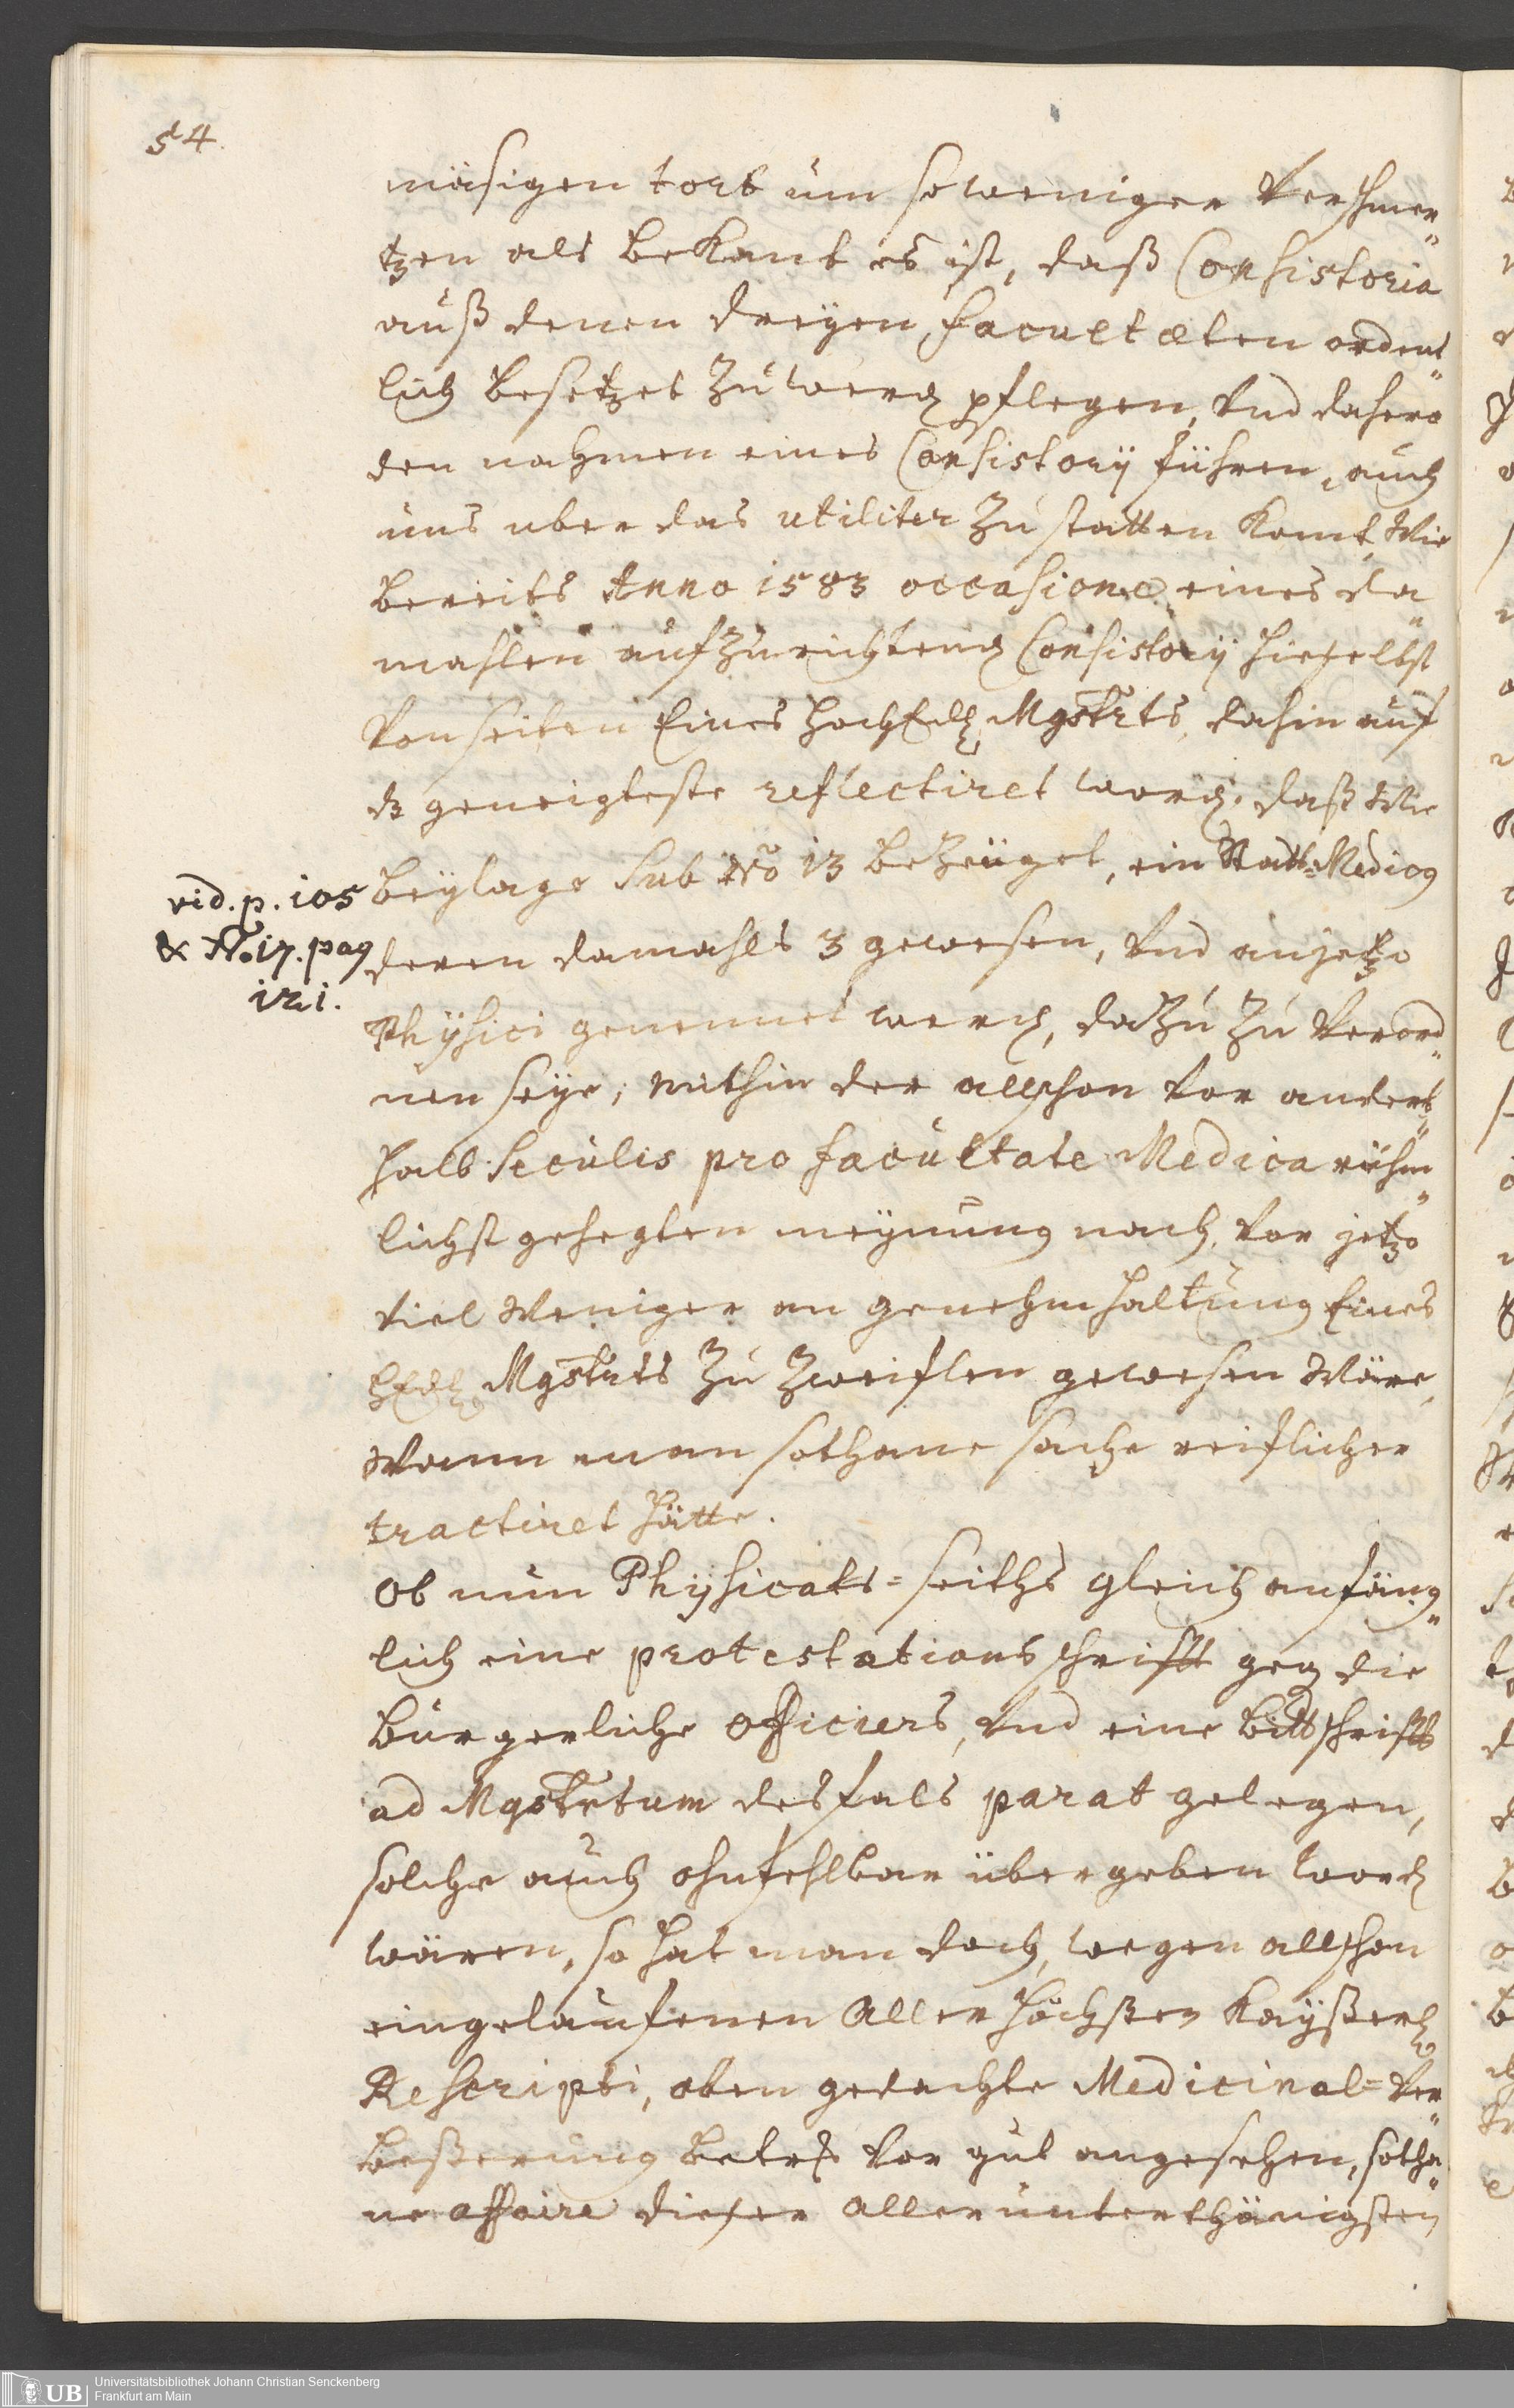 54.
mäsigen tort um so weniger verschmer„
tzen als bekant es ist, daß Consistoria
auß denen dreyen Facultæten ordent„
lich besetzet zu werden pflegen, und dahero
den nahmen eines Consistorÿ führen, auch
uns uber das utiliter zu statten komt, wie
bereits Anno 1583 occasione eines da„
mahlen aufzurichtenden Consistorÿ hieselbst
von seiten Eines HochEdl. Mgstrts, dahin auf
dz geneigteste reflectiret worden, daß wie
Beylage sub No 13 bezeuget, ein Statt=Medicus
vid. p. 105
& No. 17. pag
121.
deren damahls 3 gewesen, und anjetzo
Physici genennet werden, dazu zu verord„
nen seye, mithin der allschon vor andert„
halb Seculis pro facultate Medica rühm„
lichst gehegten meynung nach, vor jetzo
viel weniger an genehmhaltung Eines
HEdl. Mgstrts zu zweiflen gewesen wäre,
wann man sothane sache reiflicher
tractiret hätte.
Ob nun Physicats=seiths gleich anfäng„
lich eine protestations schrifft gegen die
Burgerliche Officiers, und eine Bittschrifft
ad Mgstrtum desfals parat gelegen,
solche auch ohnfehlbar übergeben worden
wären, so hat man doch, wegen allschon
eingelauffenen Allerhöchsten Kayßerl.
Rescripti, oben gedachte Medicinal=Ver„
beßerung betrf. vor gut angesehen, sotha„
ne affaire dieser allerunterthänigsten
UB
Universitätsbibliothek Johann Christian Senckenberg
Frankfurt am Main